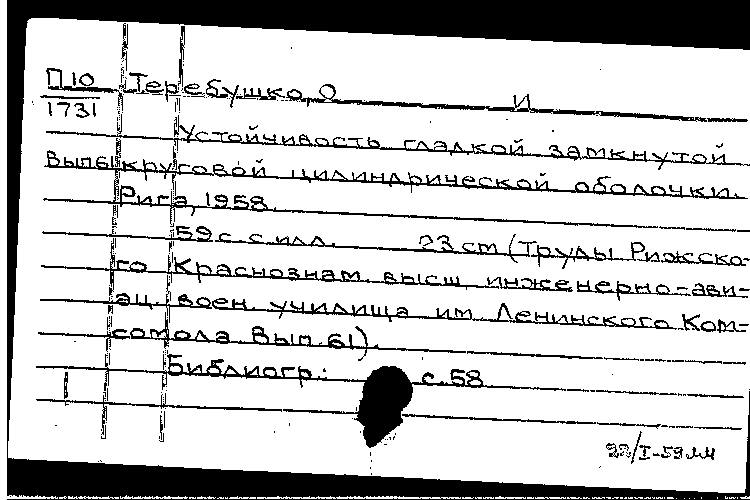 П10 Теребушко, О И
1731
Устойчивость гладкой замкнутой
Вып61 круговой цилиндрической оболочки.
Рига, 1958.
59 с. с илл. 23 cm (Труды Рижско-
го Краснознам. высш инженерно-ави-
ац. воен. училища им Ленинского Ком-
сомола. Вып. 61).
Библиогр.: с. 58
22/I-59 мч